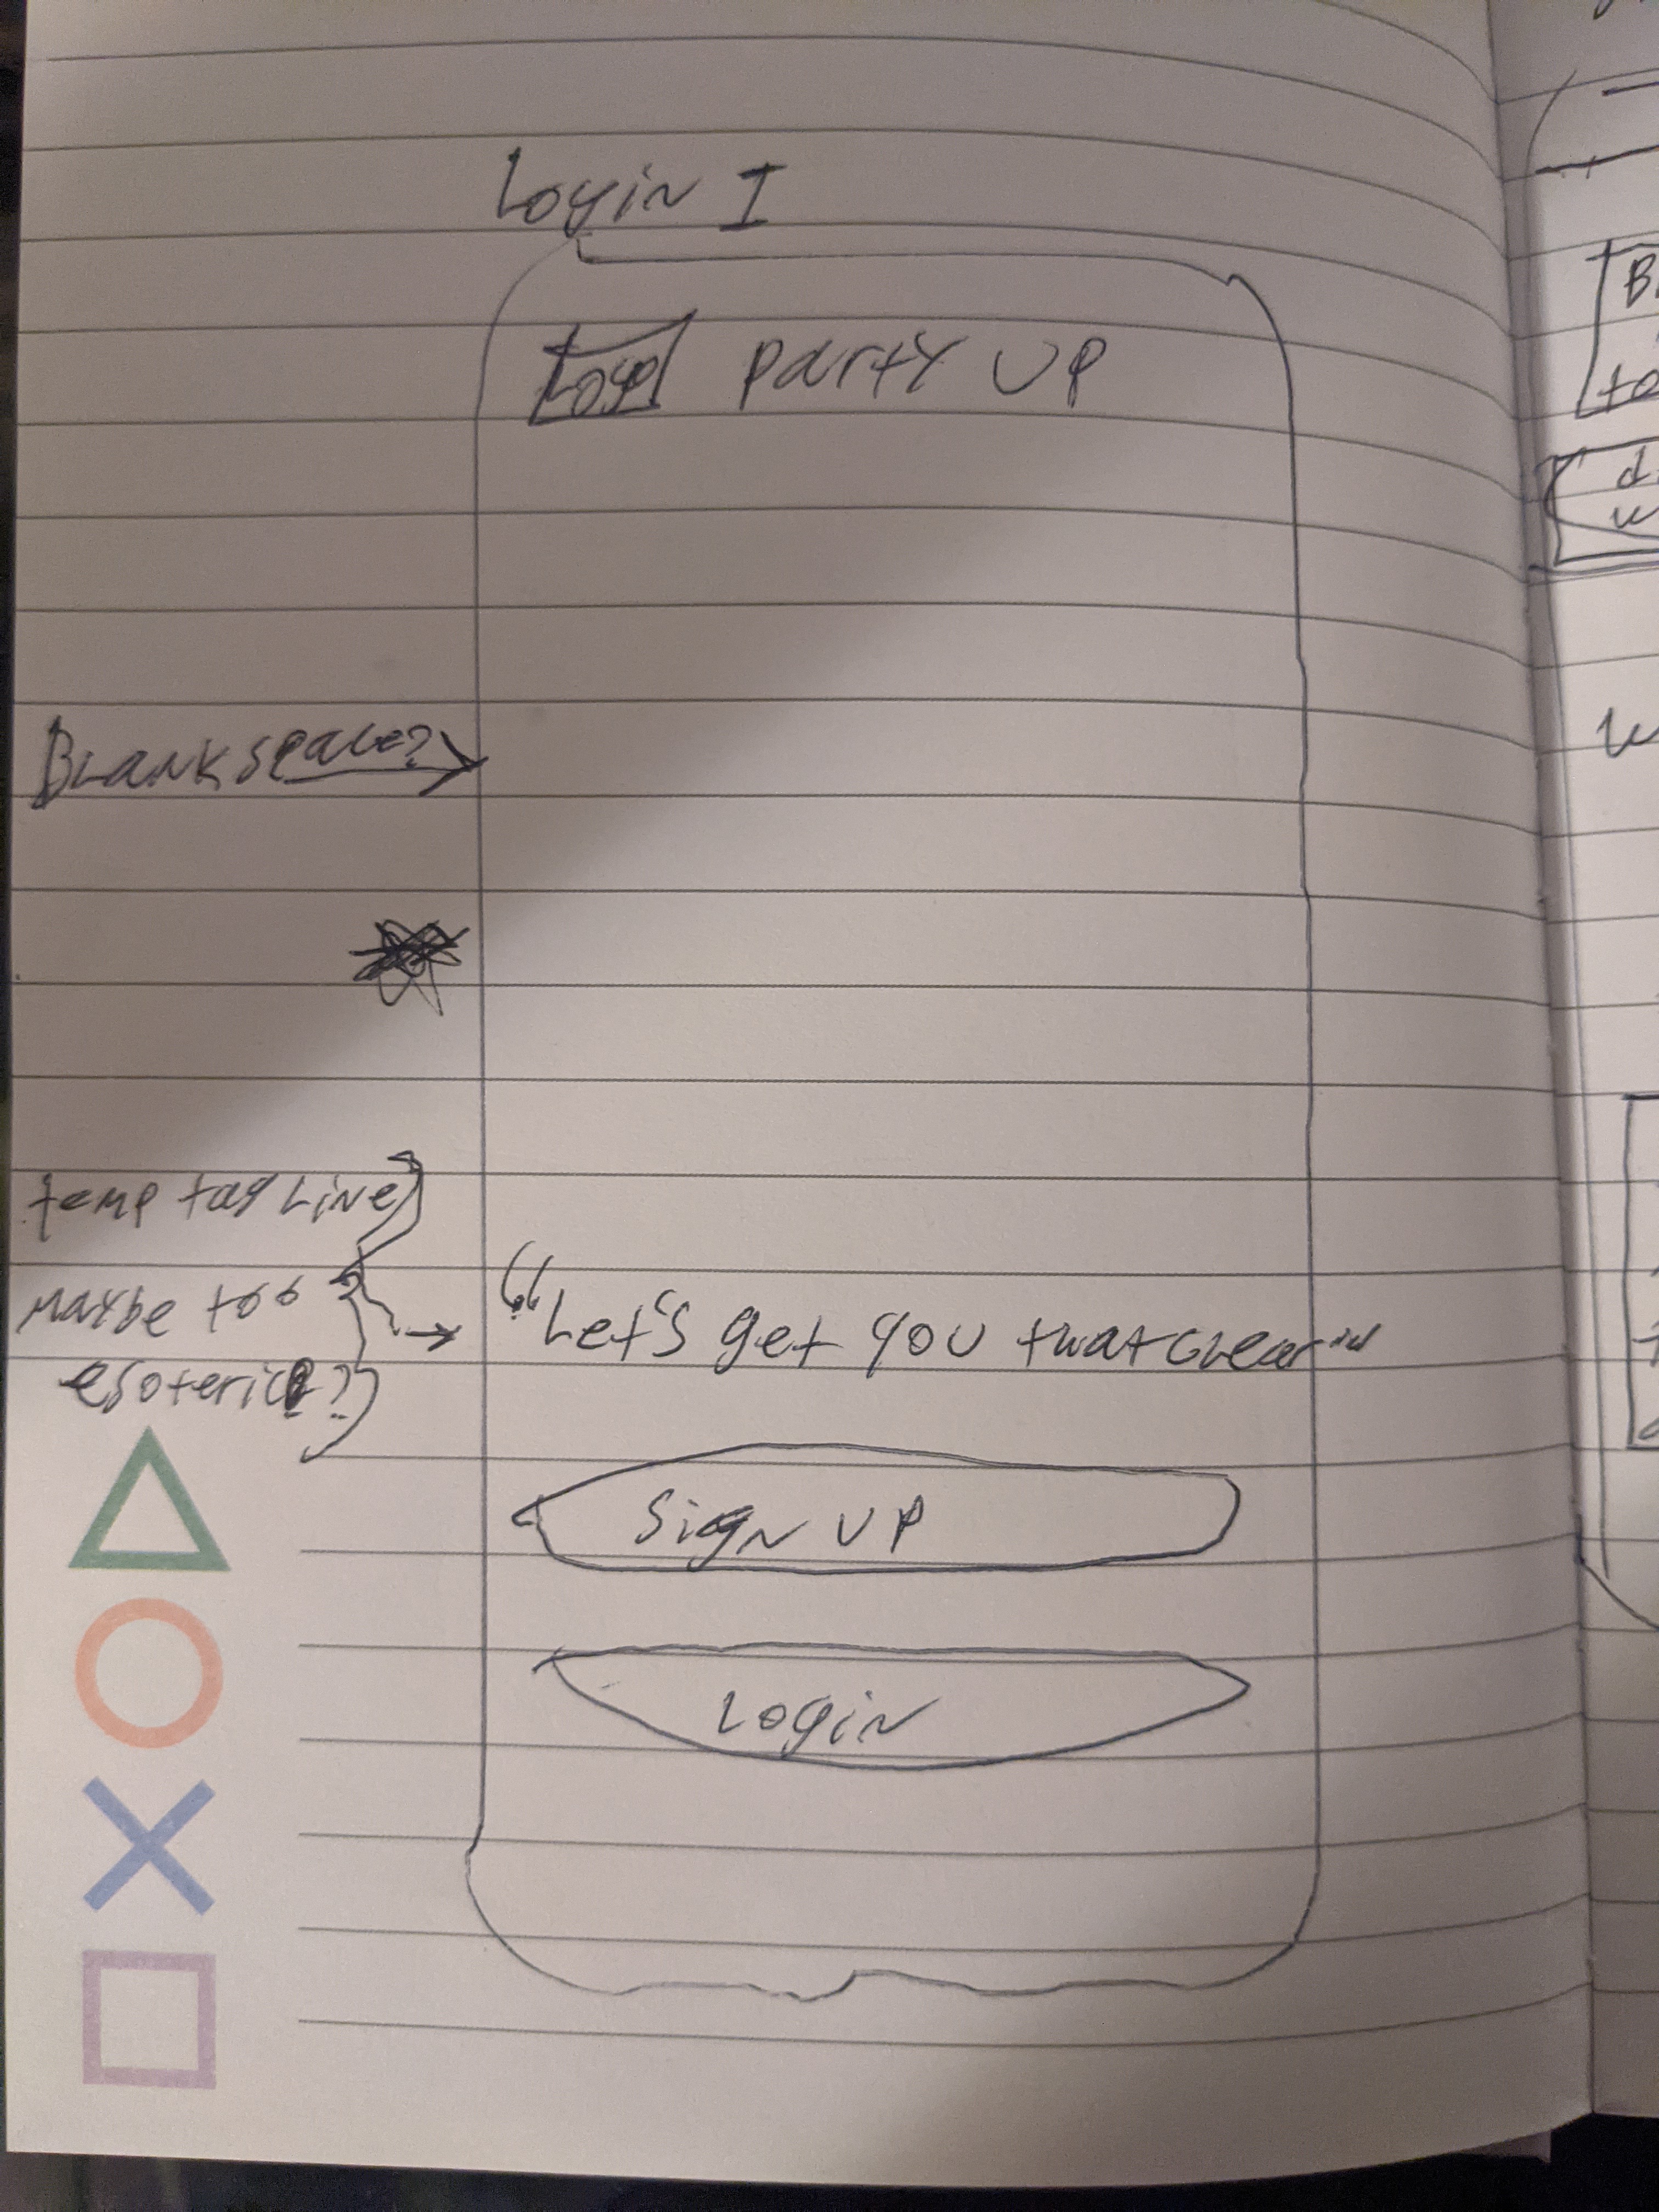 Login I
Logo Party UP
Blank space?
temp tag Line
maybe too
esoteric?
"Let's get you that clear"
Sign UP
Login
B
to
d
w